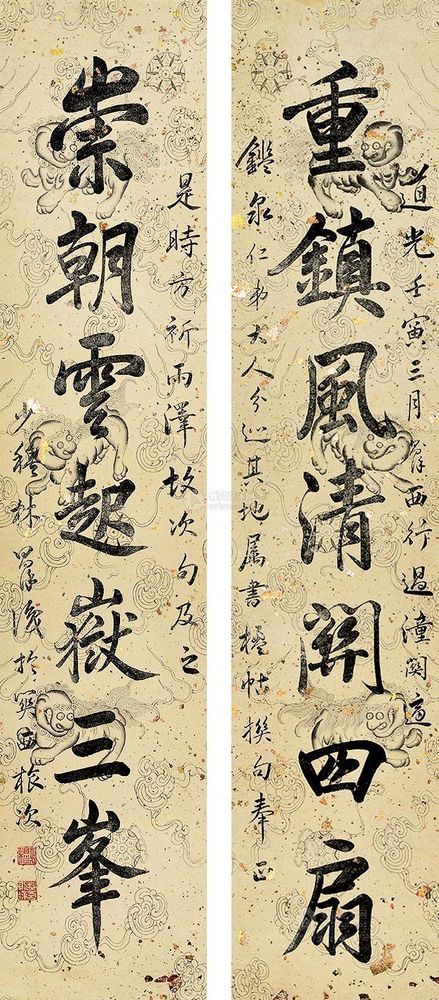 道光壬寅三月則徐西行過潼關適
重鎮風清關四扇
鑑泉仁弟大人分巡其地属書楹帖撰句奉正
是時方祈雨澤故次句及之
崇朝雲起嶽三峯
少穆林則徐識於關西旅次